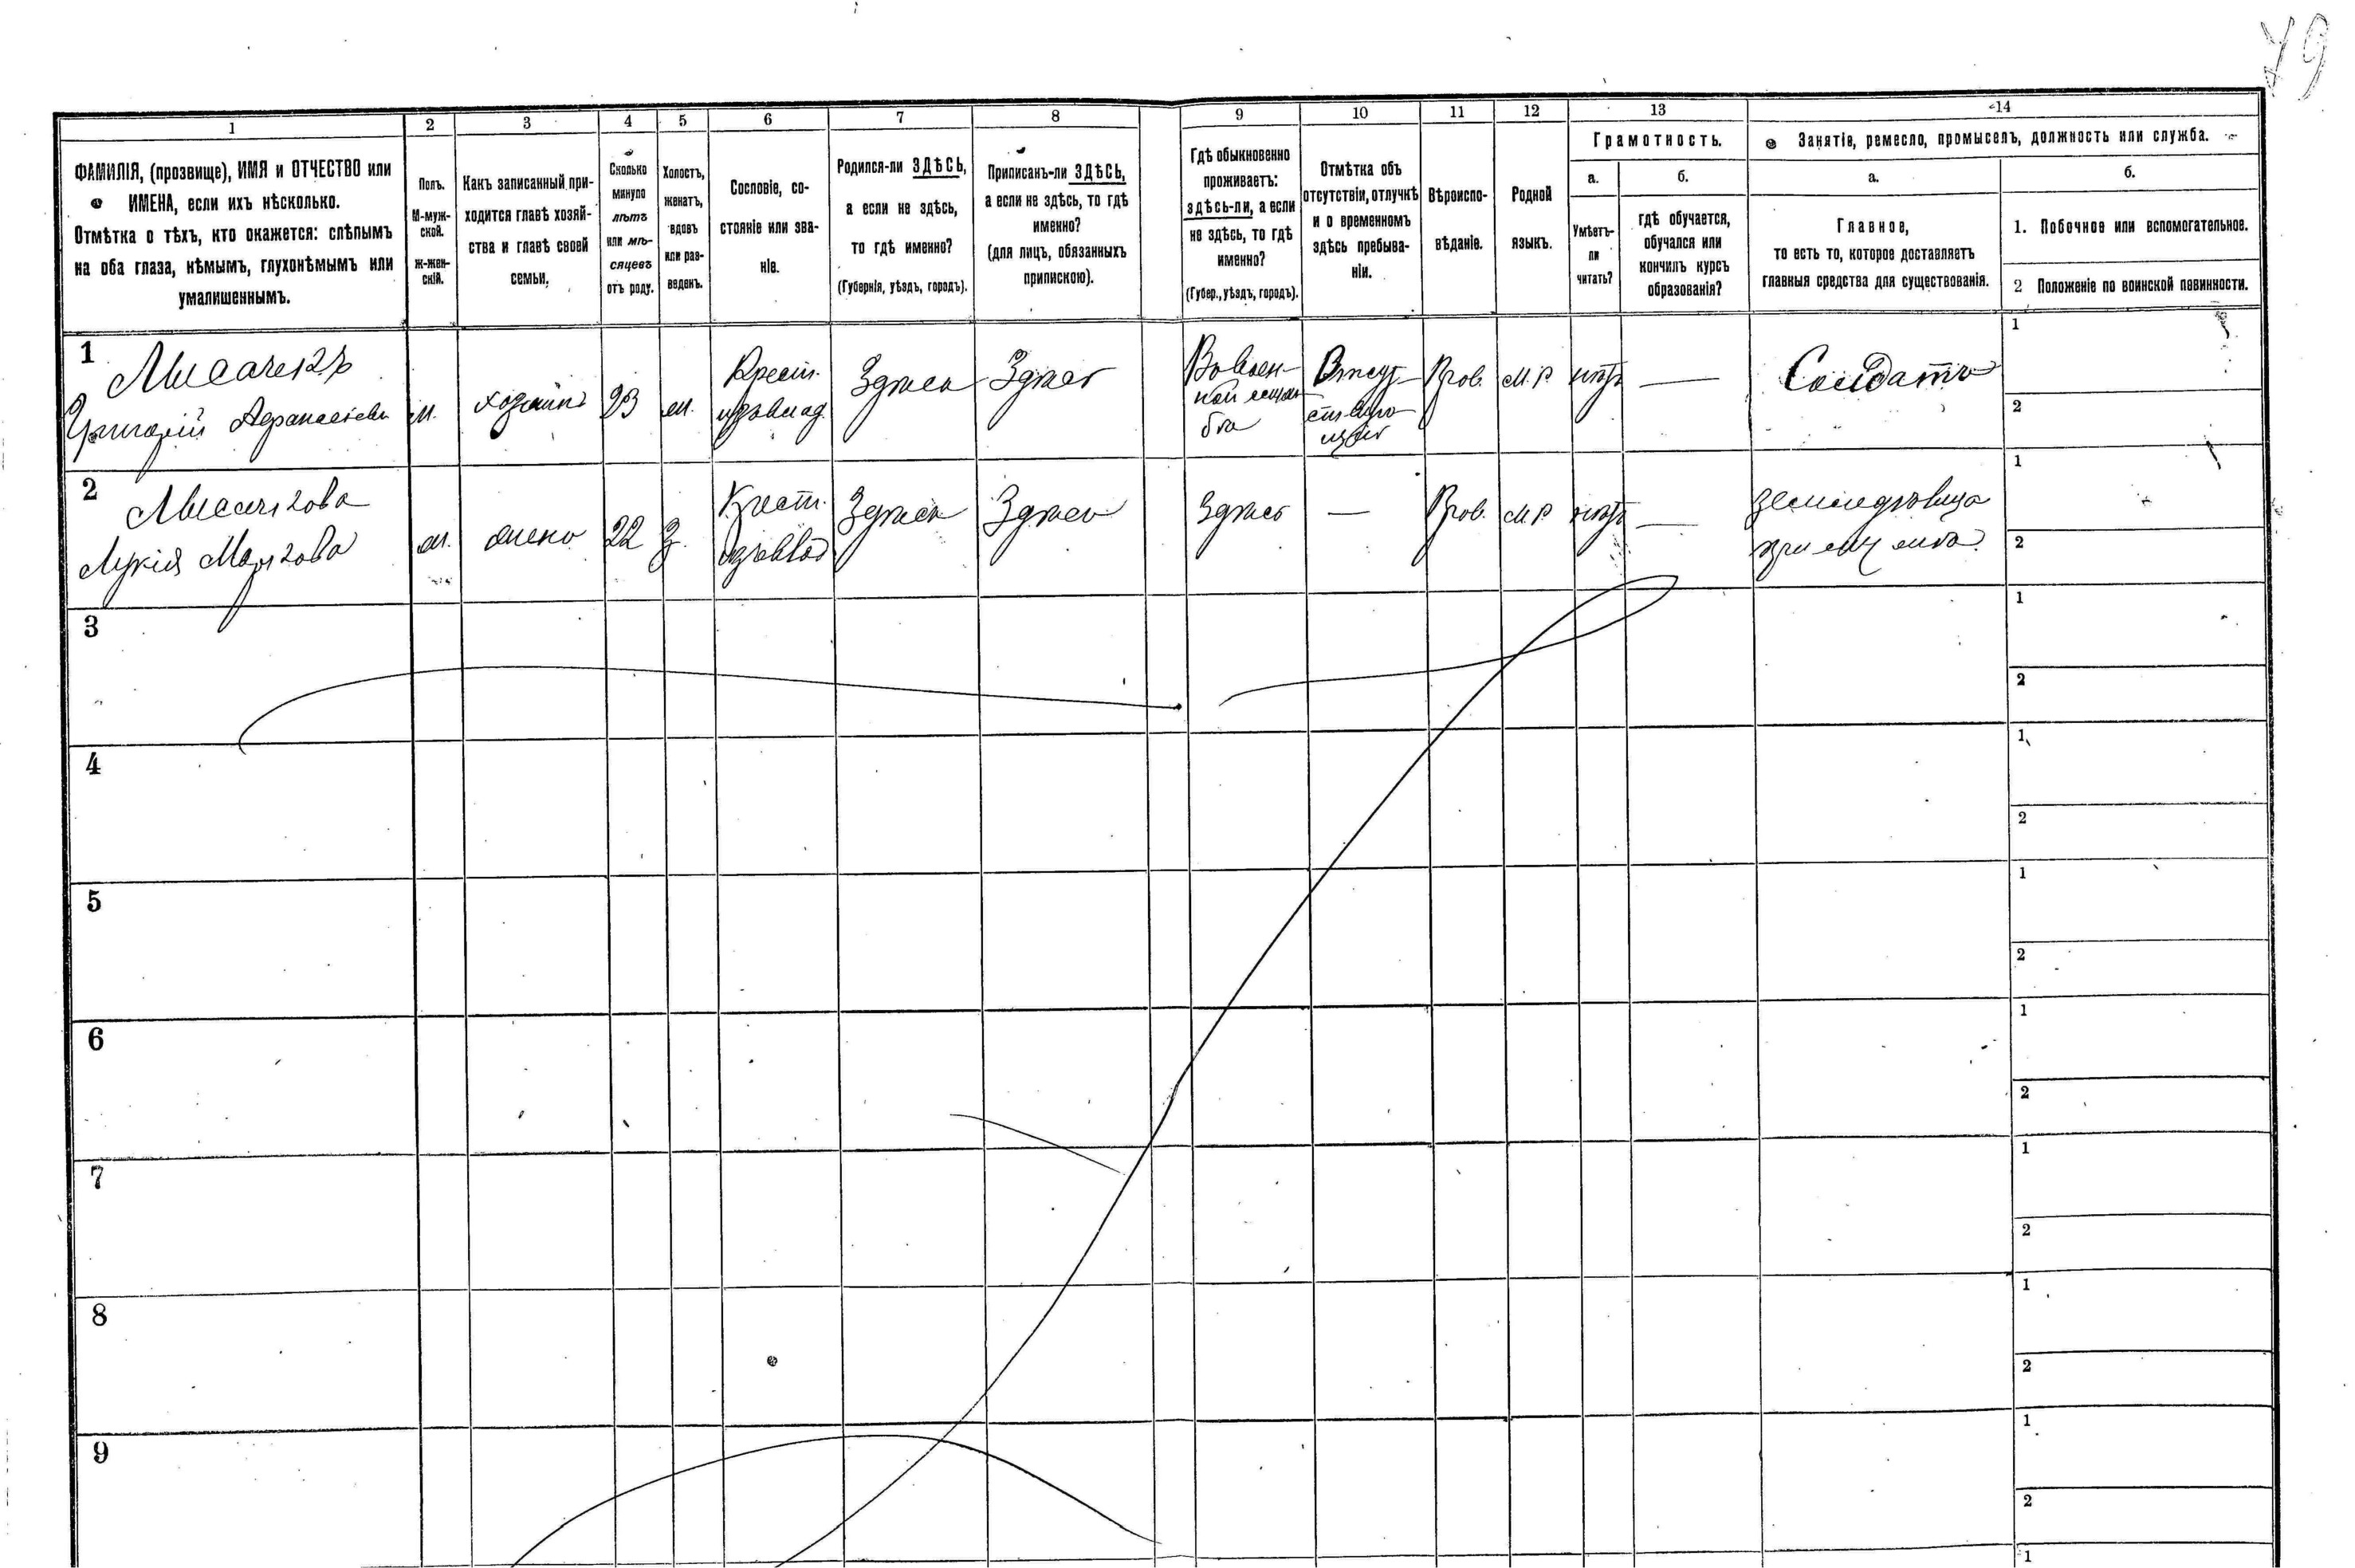 79
1 2 3 4 5 6 7 8 9 10 11 12 13 14
ФАМИЛІЯ, (прозвище), ИМЯ и ОТЧЕСТВО или
ИМЕНА, если ихъ нѣсколько.
Отмѣтка о тѣхъ, кто окажется: слѣпымъ
на оба глаза, нѣмымъ, глухонѣмымъ или
умалишеннымъ.
Полъ.
М-муж-
ской.
ж-жен-
скій.
Какъ записанный при-
ходится главѣ хозяй-
ства и главѣ своей
семьи.
Сколько
минуло
лѣтъ
или мѣ-
сяцевъ
отъ роду.
Холостъ,
женатъ,
вдовъ
или раз-
веденъ.
Сословіе, со-
стояніе или зва-
ніе.
Родился-ли ЗДѢСЬ,
а если не здѣсь,
то гдѣ именно?
(Губернія, уѣздъ, городъ).
Приписанъ-ли ЗДѢСЬ,
а если не здѣсь, то гдѣ
именно?
(для лицъ, обязанныхъ
припискою).
Гдѣ обыкновенно
проживаетъ:
здѣсь-ли, а если
не здѣсь, то гдѣ
именно?
(Губер., уѣздъ, городъ).
Отмѣтка объ
отсутствіи, отлучкѣ
и о временномъ
здѣсь пребыва-
ніи.
Вѣроиспо-
вѣданіе.
Родной
языкъ.
Грамотность.
а.
Умѣетъ-
ли
читать?
б.
гдѣ обучается,
обучался или
кончилъ курсъ
образованія?
Занятіе, ремесло, промыселъ, должность или служба.
а.
Главное,
то есть то, которое доставляетъ
главныя средства для существованія.
б.
1. Побочное или вспомогательное.
2 Положеніе по воинской повинности.
1
Григорій
м.
хозяинъ
23
Крест.
Здѣсь
Здѣсь
М. Р.
нѣтъ
—
Солдатъ
1
2
2
Лукія
жена
22
З.
Крест.
Здѣсь
Здѣсь
Здѣсь
—
М. Р.
нѣтъ
—
1
2
3
1
2
4
1
2
5
1
2
6
1
2
7
1
2
8
1
2
9
1
2
1